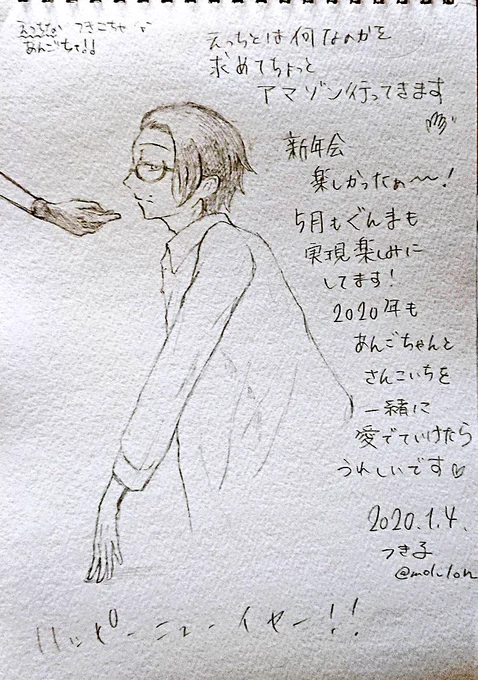 えっちな つきこちゃん
あんごちゃ!!
えっちとは何なのかを
求めてちょっと
アマゾン行ってきます
新年会
楽しかったぁ〜〜!
5月もぐんまも
実現楽しみに
してます!
2020年も
あんごちゃんと
さんこいちを
一緒に
愛でていけたら
うれしいです♡
2020.1.4.
つき子
ハッピーニューイヤー!!